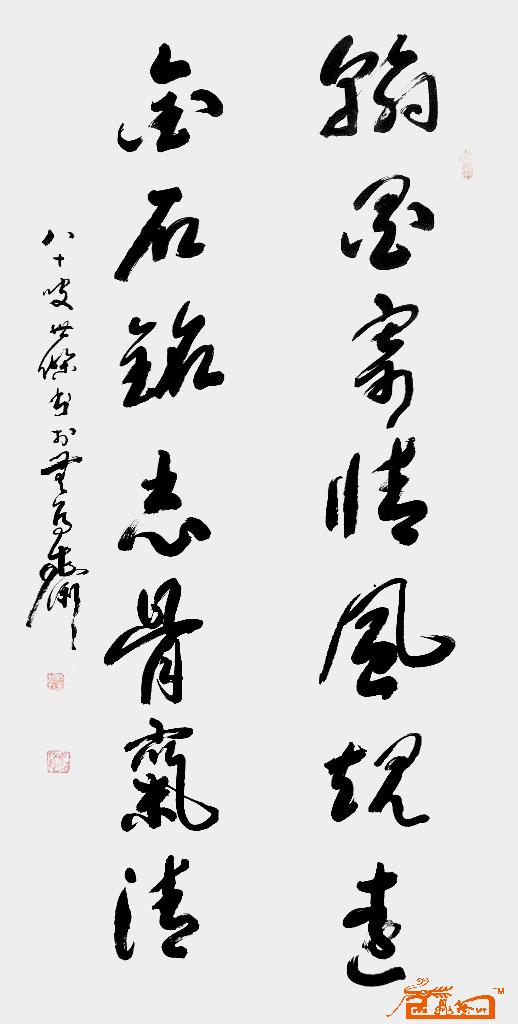 翰墨寄情風規遠
金石銘志骨氣清
八十叟世傑書於